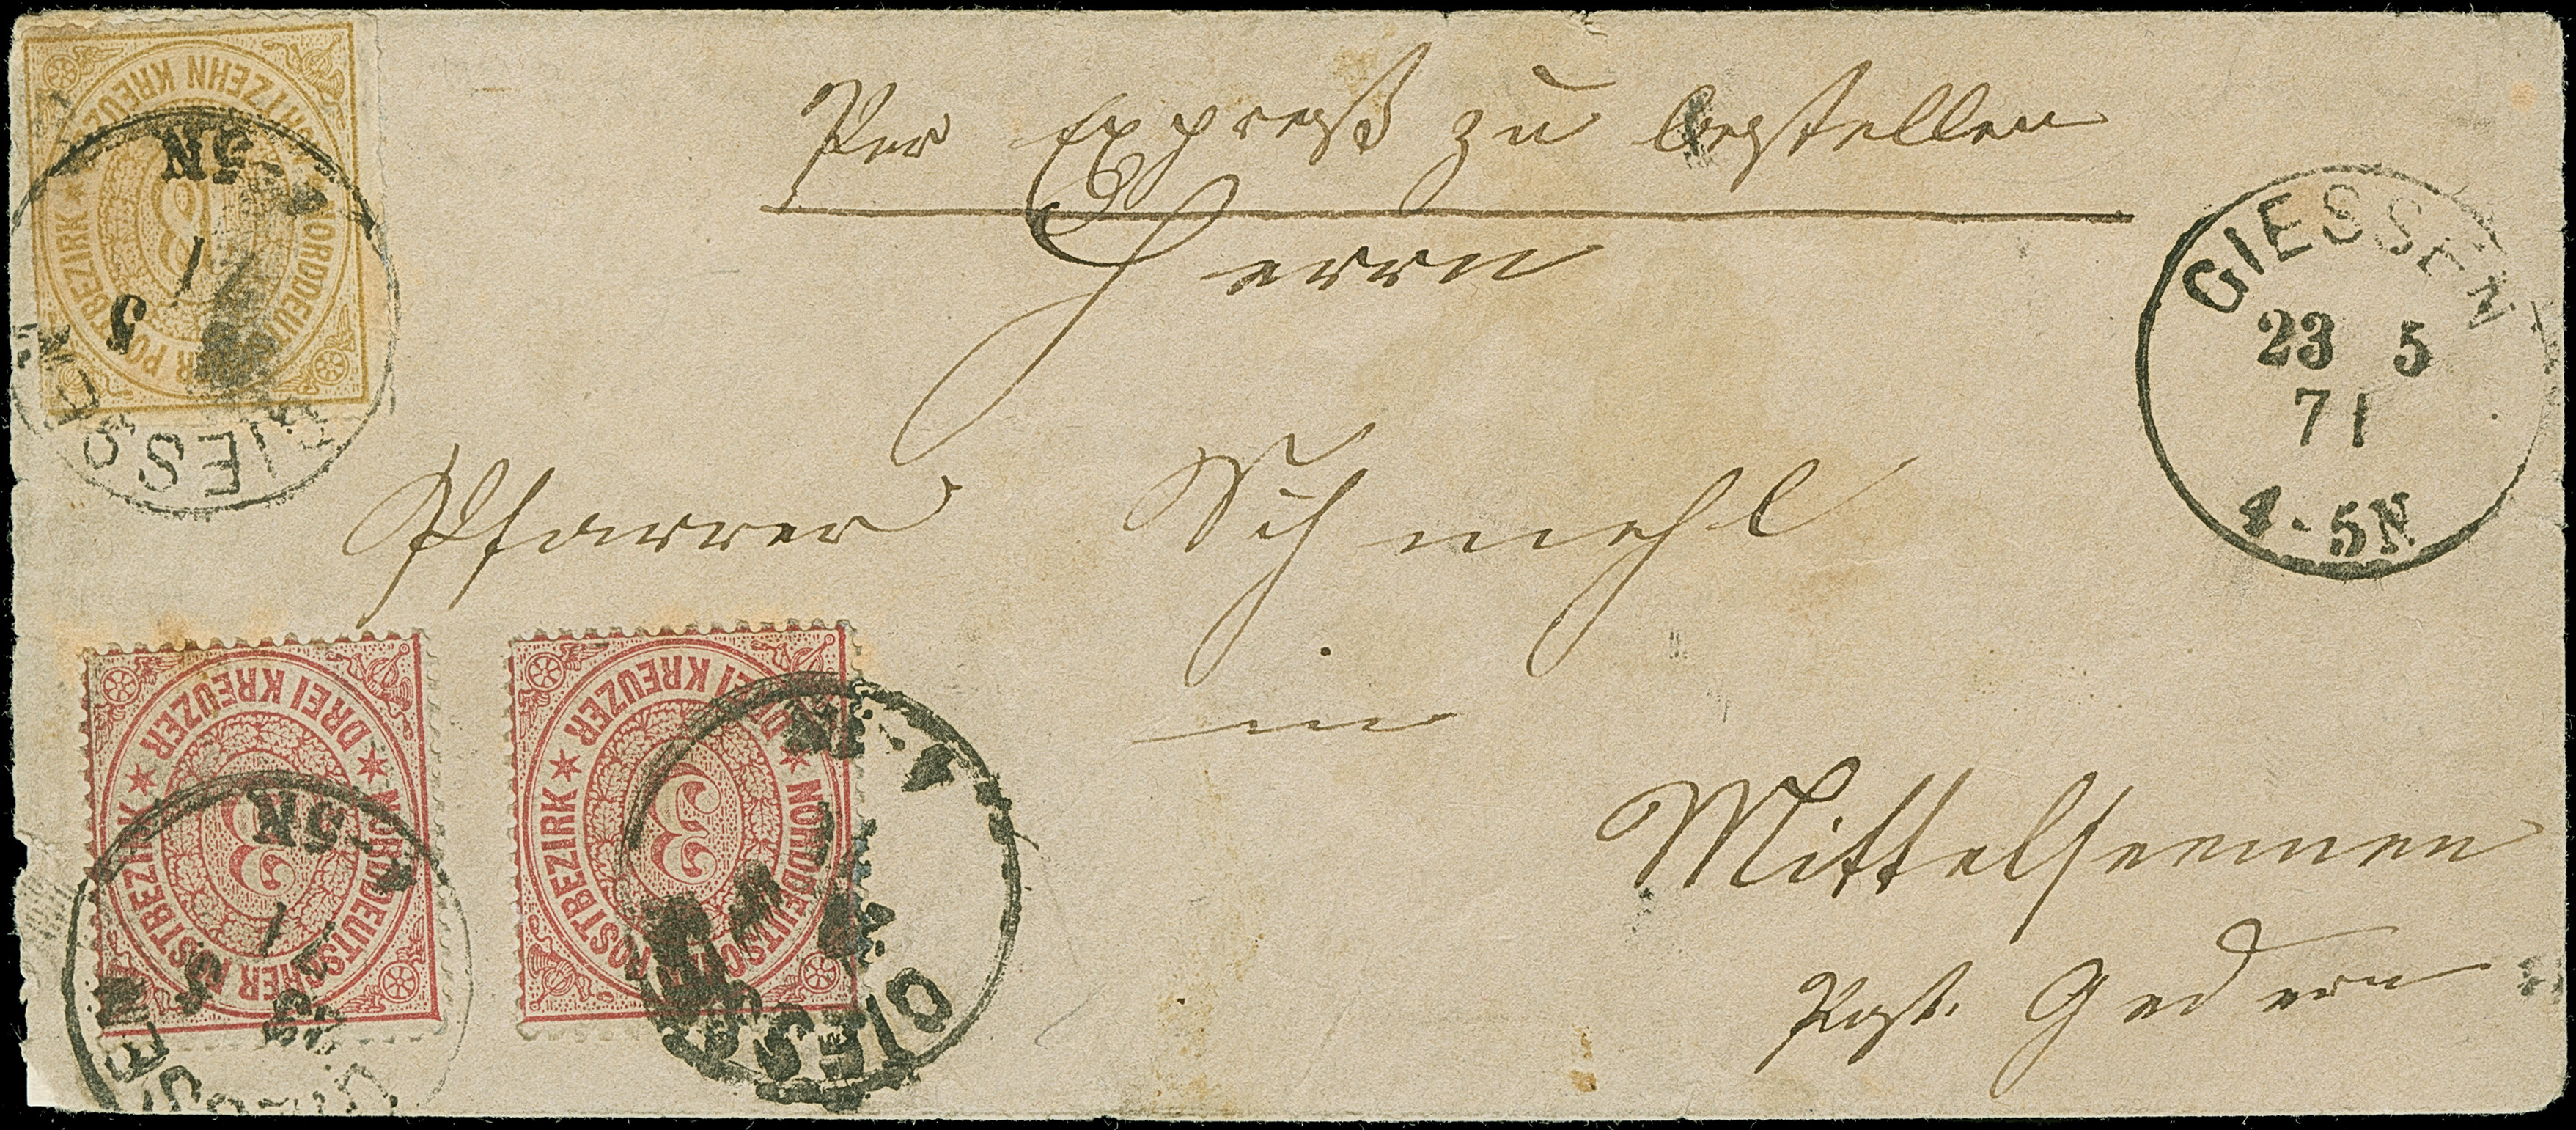 Per Expreß zu bestellen
Herrn
Pfarrer Schmehl
in
Mittelseemen
Post. Gedern
GIESSEN
23 5
71
4-5N
NORDDEUTSCHER POSTBEZIRK * ACHTZEHN KREUZER
18
5N
71
5
GIESSEN
NORDDEUTSCHER POSTBEZIRK * DREI KREUZER *
3
4-5N
71
23 5
GIESSEN
NORDDEUTSCHER POSTBEZIRK * DREI KREUZER *
3
4-5N
71
GIESSEN